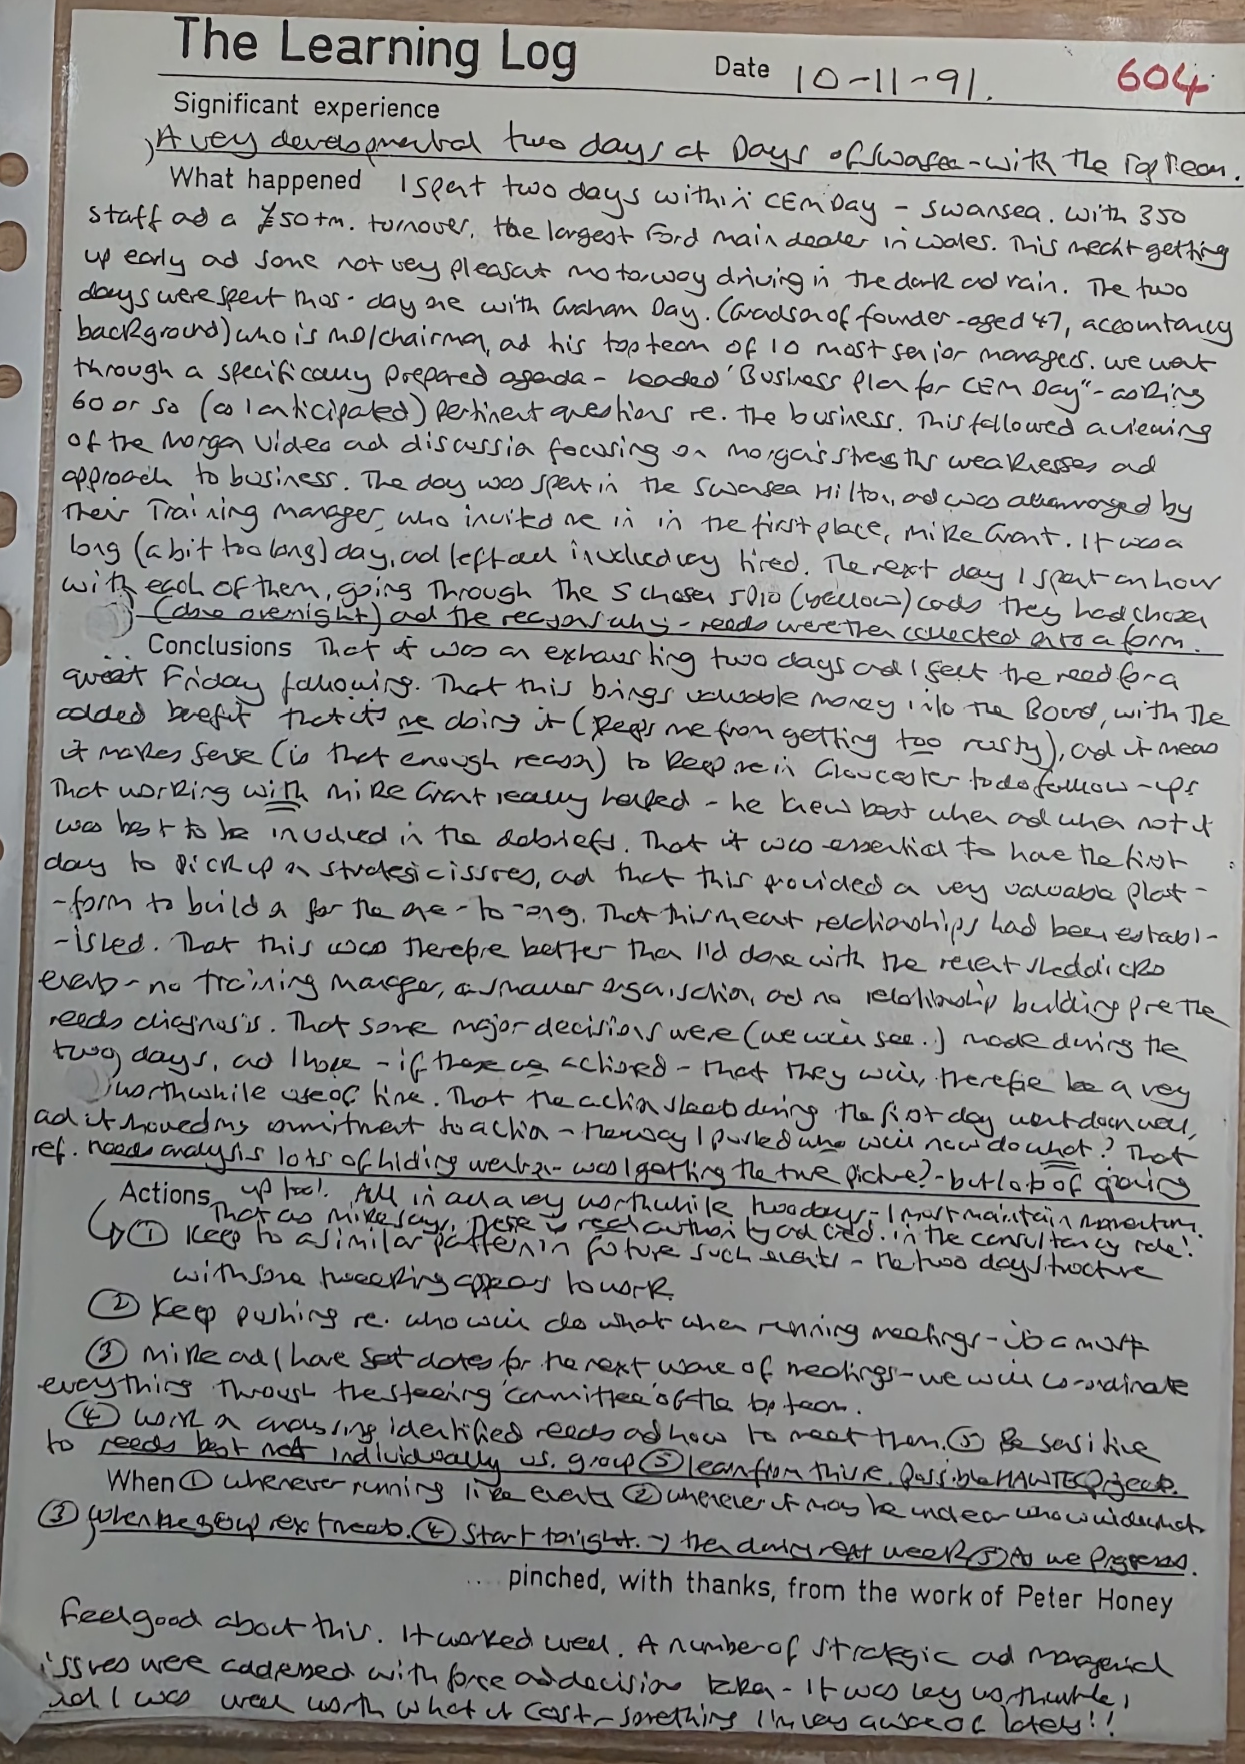 The Learning Log
Date 10-11-91. 604
Significant experience
A very developmental two days at Days of Swansea - with the Top Team.
What happened I spent two days within CEM Day - Swansea. With 350
staff ad a £50+m. turnover, the largest Ford main dealer in Wales. This meant getting
up early ad some not very pleasant motorway driving in the dark ad rain. The two
days were spent thus - day one with Graham Day. (Grandson of founder - aged 47, accountancy
background) who is MD/chairman, ad his top team of 10 most senior managers. We went
through a specifically prepared agenda - headed "Business Plan for CEM Day" - asking
60 or so (as I anticipated) pertinent questions re. the business. This followed a viewing
of the Morgan Video ad discussion focusing on Morgan's strengths weaknesses ad
approach to business. The day was spent in the Swansea Hilton, ad was all arranged by
their Training Manager, who invited me in in the first place, Mike Grant. It was a
long (a bit too long) day, ad left all involved very tired. The next day I spent an hour
with each of them, going through the 5 chosen (yellow) cards they had chosen
(done overnight) and the reasons why - needs were then collected onto a form.
Conclusions That it was an exhausting two days ad I felt the need for a
quiet Friday following. That this brings valuable money into the Board, with the
added benefit that it's me doing it (keeps me from getting too rusty), ad it means
it makes sense (is that enough reason) to keep me in Gloucester to do follow-ups
That working with Mike Grant really helped - he knew best when ad when not it
was best to be involved in the debriefs. That it was essential to have the first
day to pick up on strategic issues, ad that this provided a very valuable plat-
-form to build on for the one-to-ones. That this meant relationships had been establ-
-ished. That this was therefore better than I'd done with the recent
events - no training manager, a smaller organisation, ad no relationship building pre the
needs diagnosis. That some major decisions were (we will see.) made during the
two days, ad I hope - if these are actioned - that they will, therefore be a very
worthwhile use of time. That the action sheets during the first day went down well,
ad it showed my commitment to action - the way I pushed who will now do what? That
ref. needs analysis lots of hiding - was I getting the true picture? - but lots of giving
up too!. All in all a very worthwhile two days - I must maintain momentum.
Actions That as Mike says, there is real authority ad cred. in the consultancy role!
① Keep to a similar pattern in future such events - the two day structure
with some tweaking appears to work.
② Keep pushing re. who will do what when running meetings - is a must
③ Mike ad I have set dates for the next wave of meetings - we will co-ordinate
everything through the steering 'committee' of the top team.
④ Work on analysing identified needs ad how to meet them. ⑤ Be sensitive
to needs best met individually vs. group ⑤ learn from this re. possible HAWTEC Project.
When ① whenever running like events ② whenever it may be unclear who will do what.
③ When the group next meets. ④ Start tonight. → then during next week ⑤ As we Progress.
pinched, with thanks, from the work of Peter Honey
Feel good about this. It worked well. A number of strategic ad managerial
issues were addressed with force ad decision taken - It was very worthwhile,
ad I was well worth what it cost - something I'm very aware of lately!!